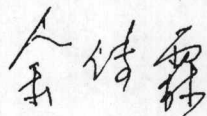 余传霖